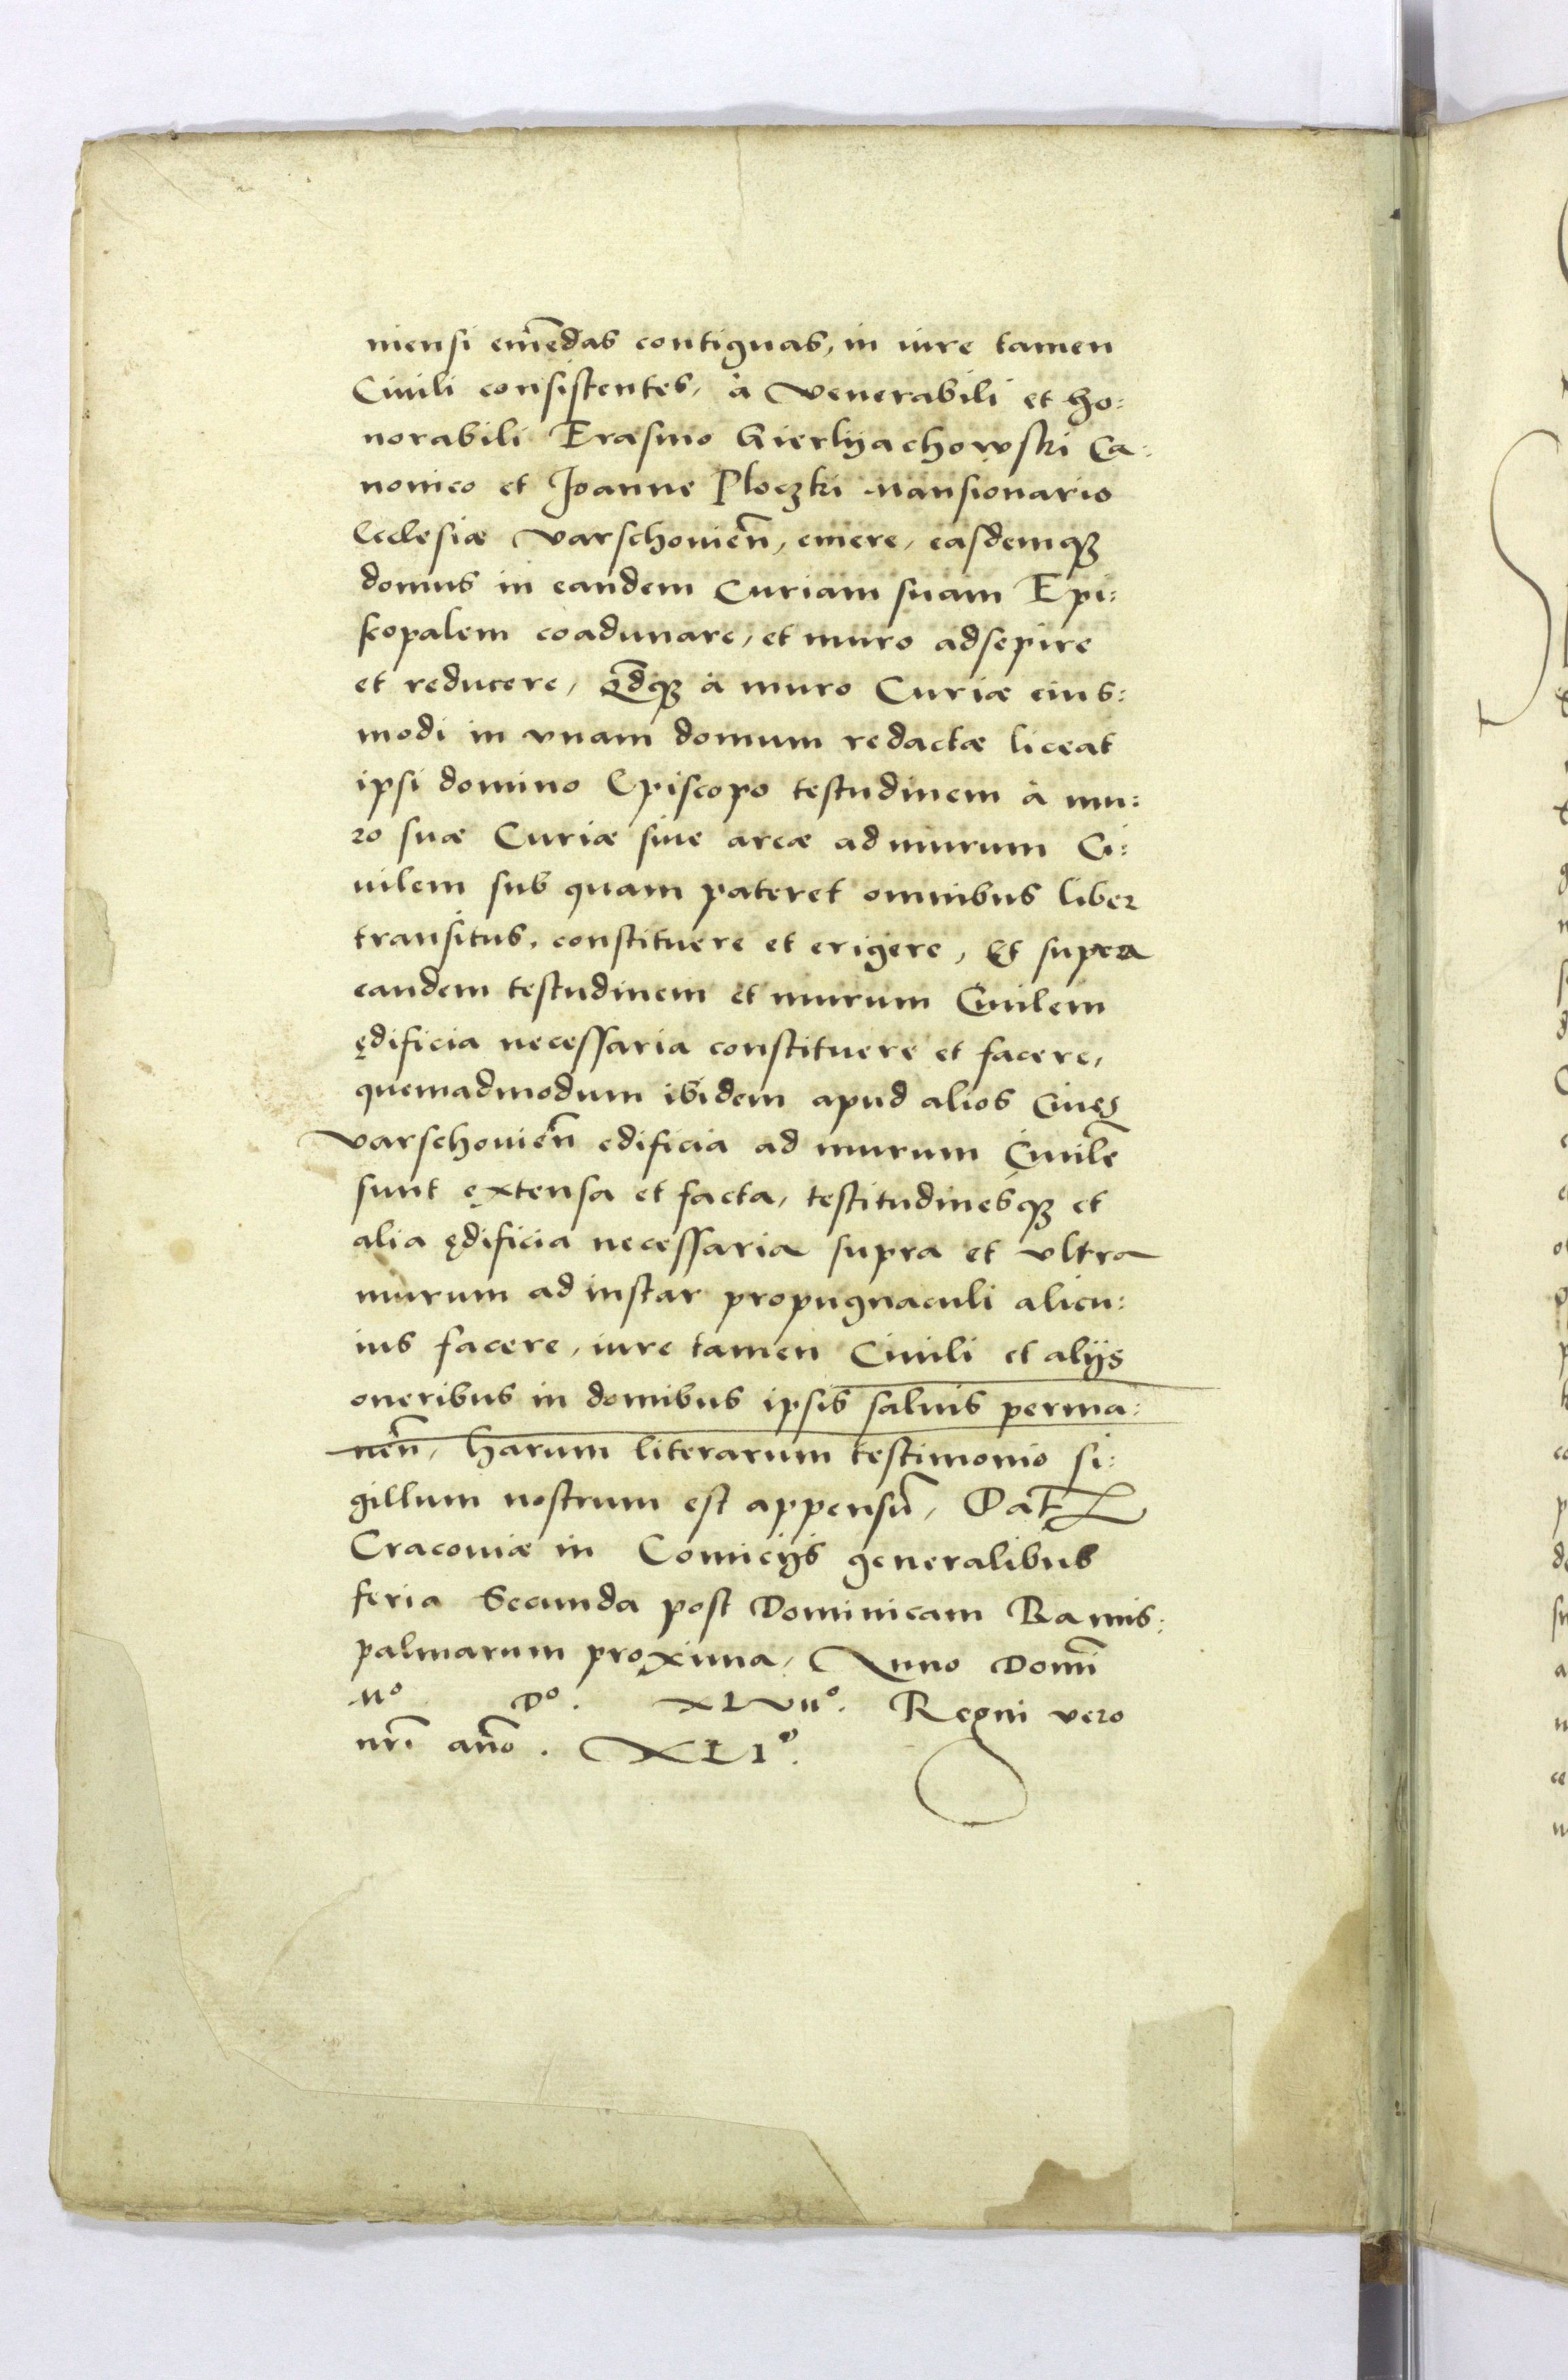 niensi emẽdas contiguas, in iure tamen
Ciuili consistentes, à Venerabili et ho:
norabili Erasmo Gierlyachowski Ca:
nonico et Joanne Ploczki Mansionario
Ecclesiæ Varschouień, emere, easdemq́ꝫ
domus in eandem Curiam suam Epi:
scopalem coadunare, et muro adsepire
et reducere, Qd̃qꝫ à muro Curiæ eius:
modi in vnam domum redactæ liceat
ipsi domino Episcopo testudinem à mu:
ro suæ Curiæ siue areæ ad murum Ci:
uilem sub quam pateret omnibus liber
transitus, constituere et erigere, Et supra
eandem testudinem et murum Ciuilem
ędificia necessaria constituere et facere,
quemadmodum ibidem apud alios Ciues
Varschouień edificia ad murum Ciuilẽ
sunt extensa et facta, testitudinesqꝫ et
alia ędificia necessaria supra et vltra
murum ad instar propugnaculi alicu:
ius facere, iure tamen Ciuili et alijs
oneribus in domibus ipsis saluis perma:
neñ, harum literarum testimonio si:
gillum nostrum est appensũ, Dat̃
Cracouiæ in Comicijs generalibus
feria Secunda post Dominicam Ramis:
palmarum proxima, Anno Domĩ
Mº Dº. XLVIIº. Regni vero
nr̃i año. XLIº.